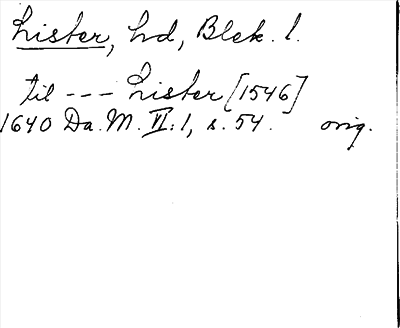 Lister, hd, Blek. l.
til --- Lister [1546]
1640 Da. M. VI:1, s. 54. orig.